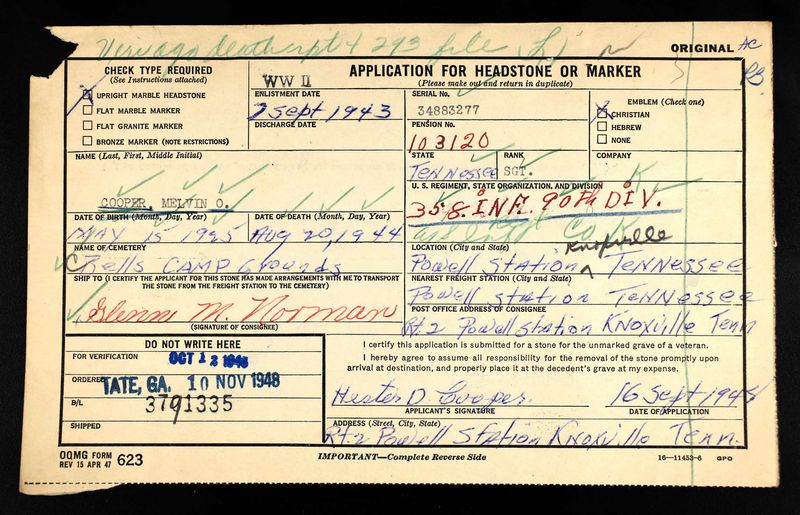 death rpt & 293 file (L)
ORIGINAL AC
CHECK TYPE REQUIRED
(See Instructions attached)
X UPRIGHT MARBLE HEADSTONE
FLAT MARBLE MARKER
FLAT GRANITE MARKER
BRONZE MARKER (NOTE RESTRICTIONS)
WW II
ENLISTMENT DATE
7 Sept 1943
DISCHARGE DATE
APPLICATION FOR HEADSTONE OR MARKER
(Please make out and return in duplicate)
SERIAL No.
34883277
PENSION No.
103120
EMBLEM (Check one)
X CHRISTIAN
HEBREW
NONE
NAME (Last, First, Middle Initial)
COOPER, MELVIN O.
STATE
TENNessee
RANK
SGT.
COMPANY
U. S. REGIMENT, STATE ORGANIZATION, AND DIVISION
358 INF. 90th DIV.
DATE OF BIRTH (Month, Day, Year)
MAY 15 1925
DATE OF DEATH (Month, Day, Year)
Aug 20, 1944
NAME OF CEMETERY
Bells CAMP Grounds
LOCATION (City and State)
Knoxville
Powell Station TENNessee
SHIP TO (I CERTIFY THE APPLICANT FOR THIS STONE HAS MADE ARRANGEMENTS WITH ME TO TRANSPORT
THE STONE FROM THE FREIGHT STATION TO THE CEMETERY)
Glenn M. Norman
(SIGNATURE OF CONSIGNEE)
NEAREST FREIGHT STATION (City and State)
Powell Station TENNessee
POST OFFICE ADDRESS OF CONSIGNEE
Rt. 2 Powell Station Knoxville Tenn
DO NOT WRITE HERE
FOR VERIFICATION
OCT 12 1948
ORDERED
TATE, GA. 10 NOV 1948
B/L
3791335
SHIPPED
I certify this application is submitted for a stone for the unmarked grave of a veteran.
I hereby agree to assume all responsibility for the removal of the stone promptly upon
arrival at destination, and properly place it at the decedent's grave at my expense.
Hester D Cooper
APPLICANT'S SIGNATURE
16 Sept 1948
DATE OF APPLICATION
ADDRESS (Street, City, State)
Rt. 2 Powell Station Knoxville Tenn.
OQMG FORM
REV 15 APR 47 623
IMPORTANT—Complete Reverse Side
16—11453-6 GPO